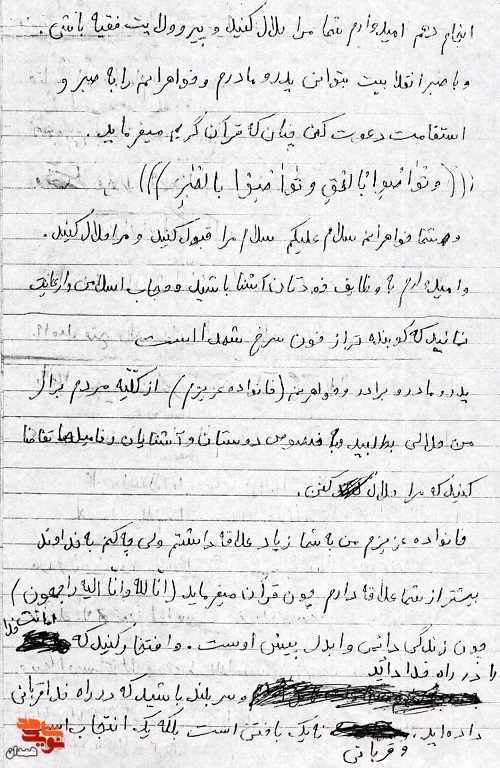 انجام دهم امیدوارم شما مرا حلال کنید و پیرو ولایت فقیه باشی.
و با صبر انقلابیت بتوانی پدر و مادرم و خواهرانم را به صبر و
استقامت دعوت کنی چنان که قرآن کریم میفرماید.
(((وَتَواصَوا بِالحَقِ وَ تَواصَوا بِالصَّبرِ)))
و شما خواهرانم سلام علیکم سلام مرا قبول کنید و مرا حلال کنید.
و امیدوارم به وظایف خودتان آشنا باشید و حجاب اسلامی را رعایت
نمائید که کوبنده تر از خون سرخ شهدا است
پدر و مادر و برادر و خواهرانم (خانواده عزیزم) از کلّیه مردم برای
من حلالی بطلبید و به خصوص دوستان و آشنایان و فامیلها تقاضا
کنید که مرا حلال کنن.
خانواده عزیزم من به شما زیاد علاقه داشتم ولی چه کنم به خداوند
بیشتر از شما علاقه دارم چون قرآن میفرماید (انّا لله و انّا الیه راجعون)
چون زندگی دائمی و ابدی پیش اوست. و افتخار کنید که امانت خدا
را در راه خدا داده‌اید
و سربلند باشید که در راه خدا قربانی
داده اید. نه یک باختنی است بلکه یک انتخاب است
و قربانی
نوید شاهد
همدان